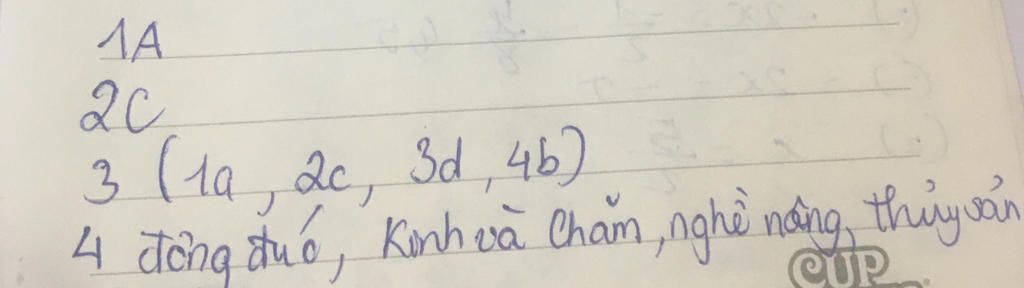 1A
2C
3 (1a, 2c, 3d, 4b)
4 đông đúc, Kinh và Chăm, nghề nông, thủy sản
CUP